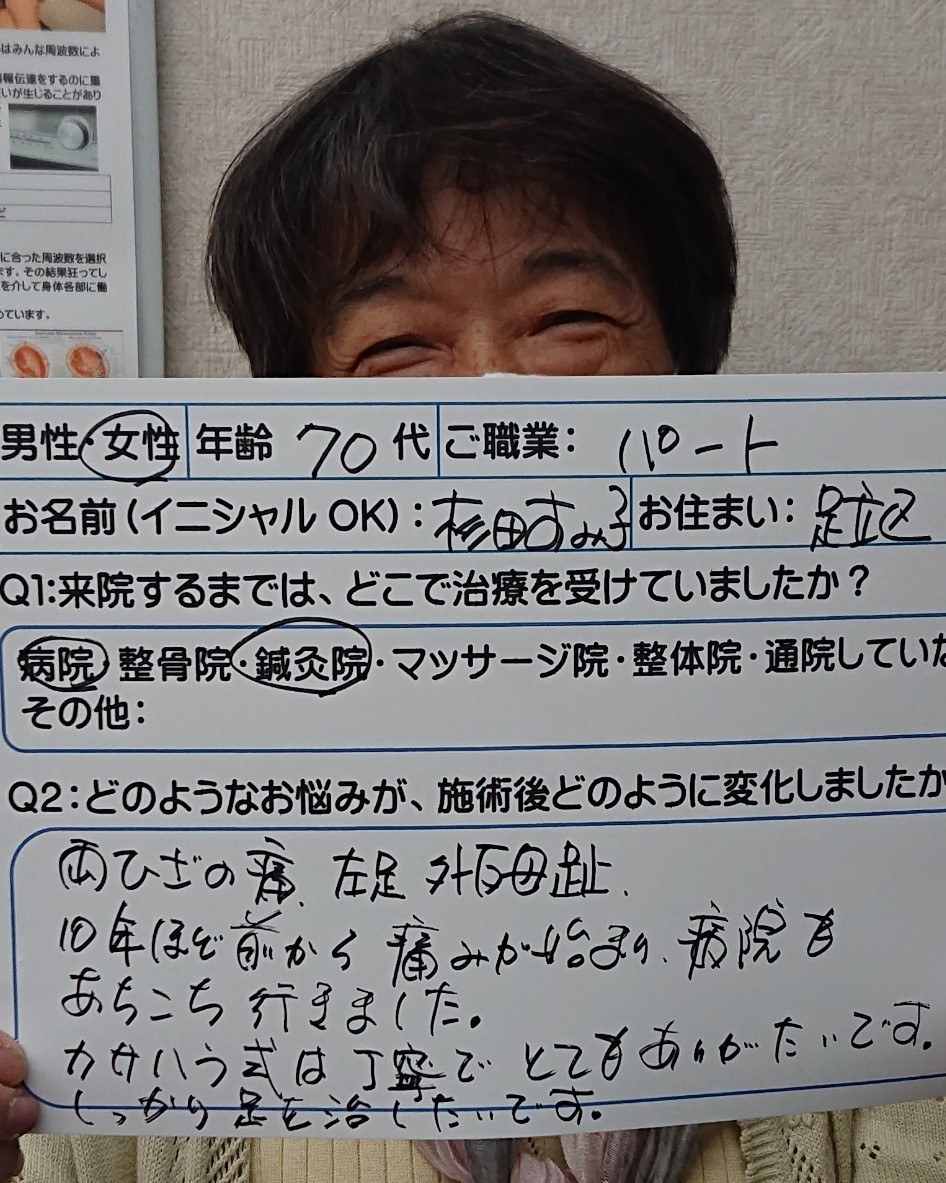 はみんな周波数によ
報伝達をするのに重
いが生じることがあり
に合った周波数を選択
ます。その結果狂ってし
を介して身体各部に働
めています。
男性・女性 年齢 70代 ご職業: パート
お名前(イニシャルOK): 杉田すみ子 お住まい: 足立区
Q1:来院するまでは、どこで治療を受けていましたか?
病院・整骨院・鍼灸院・マッサージ院・整体院・通院していな
その他:
Q2:どのようなお悩みが、施術後どのように変化しましたか
両ひざの痛、左足外反母趾、
10年ほど前から痛みが始まり、病院も
あちこち行きました。
カサハラ式は丁寧でとてもありがたいです。
しっかり足を治したいです。